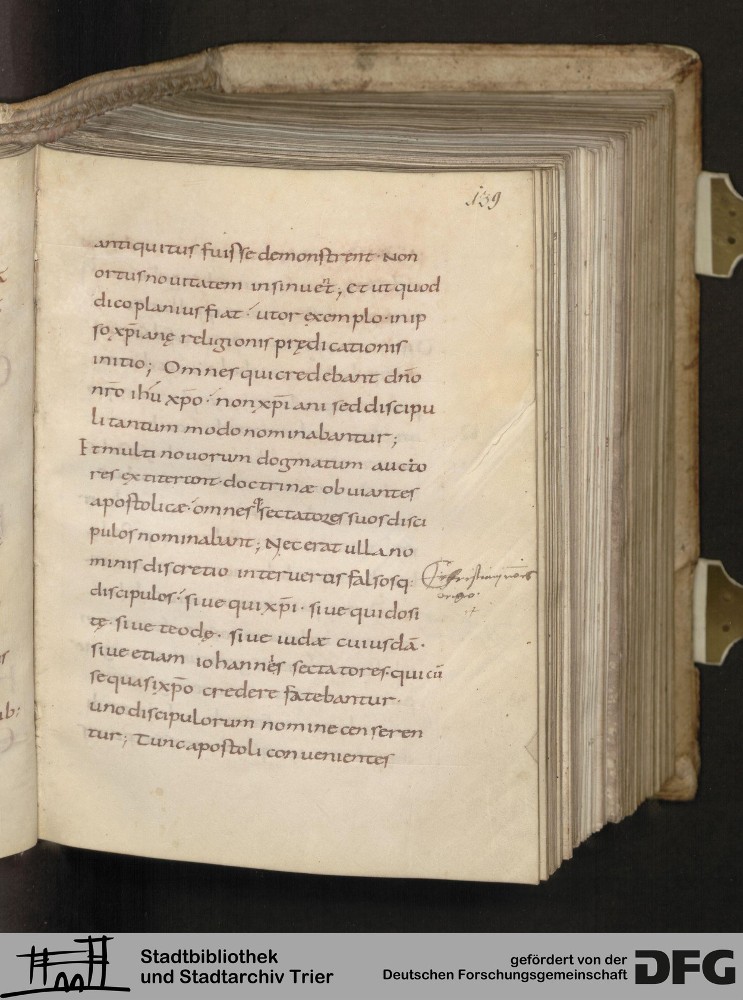 139
antiquitus fuisse demonstrent· Non
ortus nouitatem insinuet; Et ut quod
dico planius fiat· utor exemplo· in ip
so xp̄iane religionis prędicationis
initio; Omnes qui credebant dn̄o
nr̄o ihū xp̄o· non xp̄iani sed discipu
li tantum modo nominabantur;
Et multi nouorum dogmatum aucto
res extiterunt· doctrinæ obuiantes
apostolicæ· omnesq· sectatores suos disci
pulos nominabant; Nec erat ulla no
minis discretio inter uertis falsosq·
discipulos· siue qui xp̄i· siue qui dosi
tę· siue teodę· siue iudæ cuiusdā·
siue etiam iohannes sectatores· qui cū
se quasi xp̄o credere fatebantur·
uno discipulorum nomine censeren
tur; Tunc apostoli conuenientes
origo
Stadtbibliothek
und Stadtarchiv Trier
gefördert von der
Deutschen Forschungsgemeinschaft
DFG